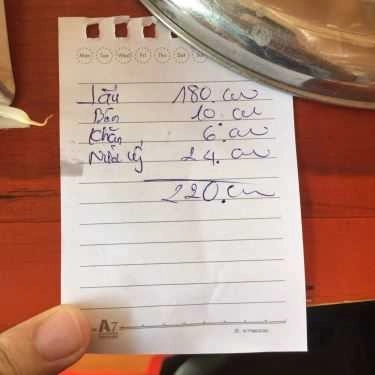 Mon Tue Wed Fri Thu Sat Sun
Lẩu 180.000
Bún 10.000
Khăn 6.000
Nước 24.000
220.000
A7